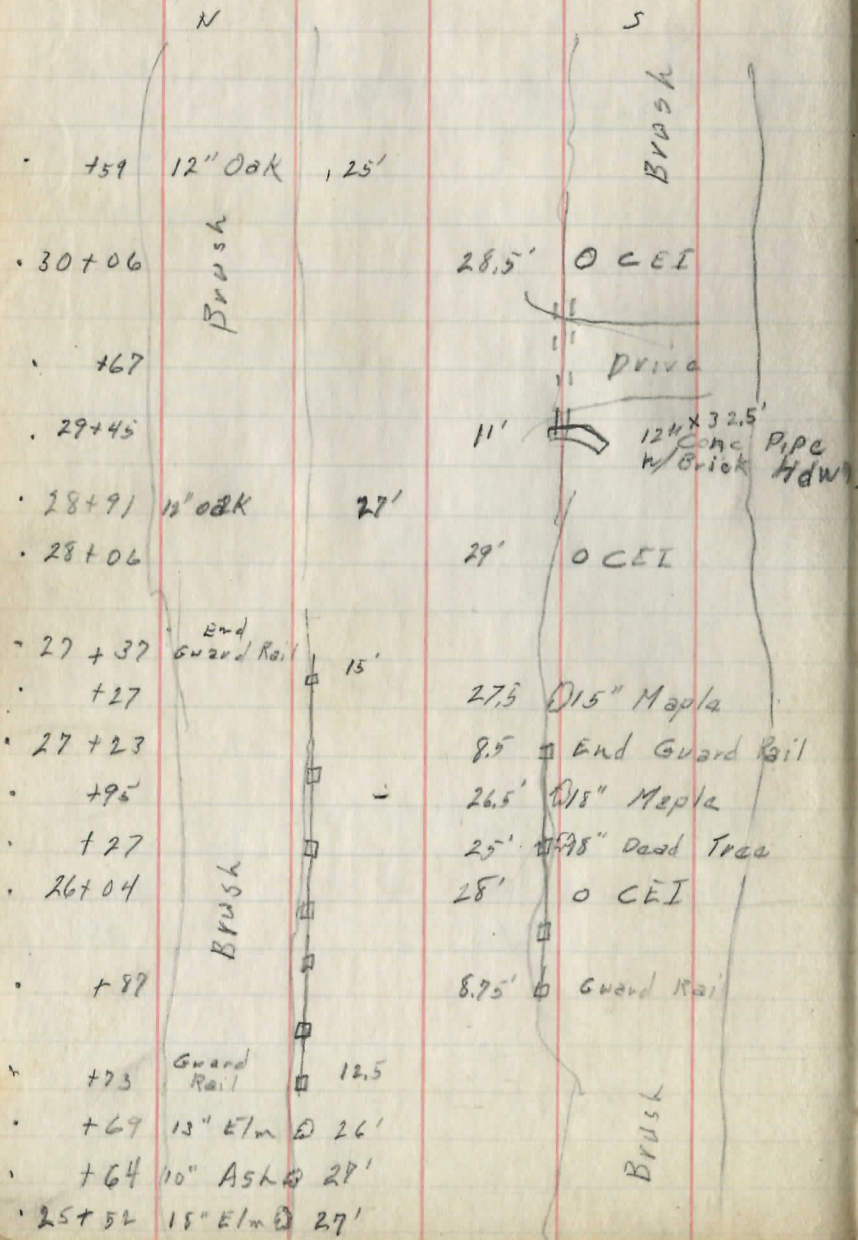 N S
Brush
+59 12" Oak 25'
Brush
30+06 28.5' O CEI
+67 Drive
29+45 11' 12" x 32.5'
Conc Pipe
w/ Brick Hdwl
28+91 12" oak 27'
28+06 29' O CEI
27+37 End Guard Rail 15'
+27 27.5 15" Maple
27+23 8.5 End Guard Rail
+95 - 26.5' 18" Maple
+27 25' 18" Dead Tree
26+04 28' O CEI
Brush
+87 8.75' Guard Rail
+73 Guard Rail 12.5
+69 13" Elm 26'
+64 10" Ash 27'
Brush
25+52 15" Elm 27'